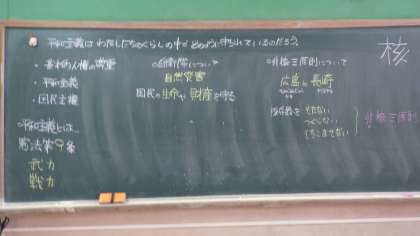 平和主義はわたしたちのくらしの中でどのように守られているのだろう。
・基本的人権の尊重
・平和主義
・国民主権
○平和主義とは…
憲法第9条
武力
戦力
○自衛隊について
自然災害
国民の生命や財産を守る
○非核三原則について
広島、長崎
核兵器を
もたない
つくらない
もちこませない
非核三原則
核